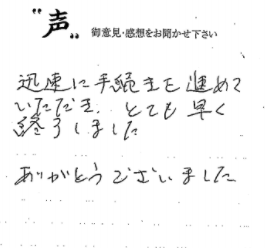 "声" 御意見・感想をお聞かせ下さい
迅速に手続きを進めて
いただき、とても早く
終了しました
ありがとうございました